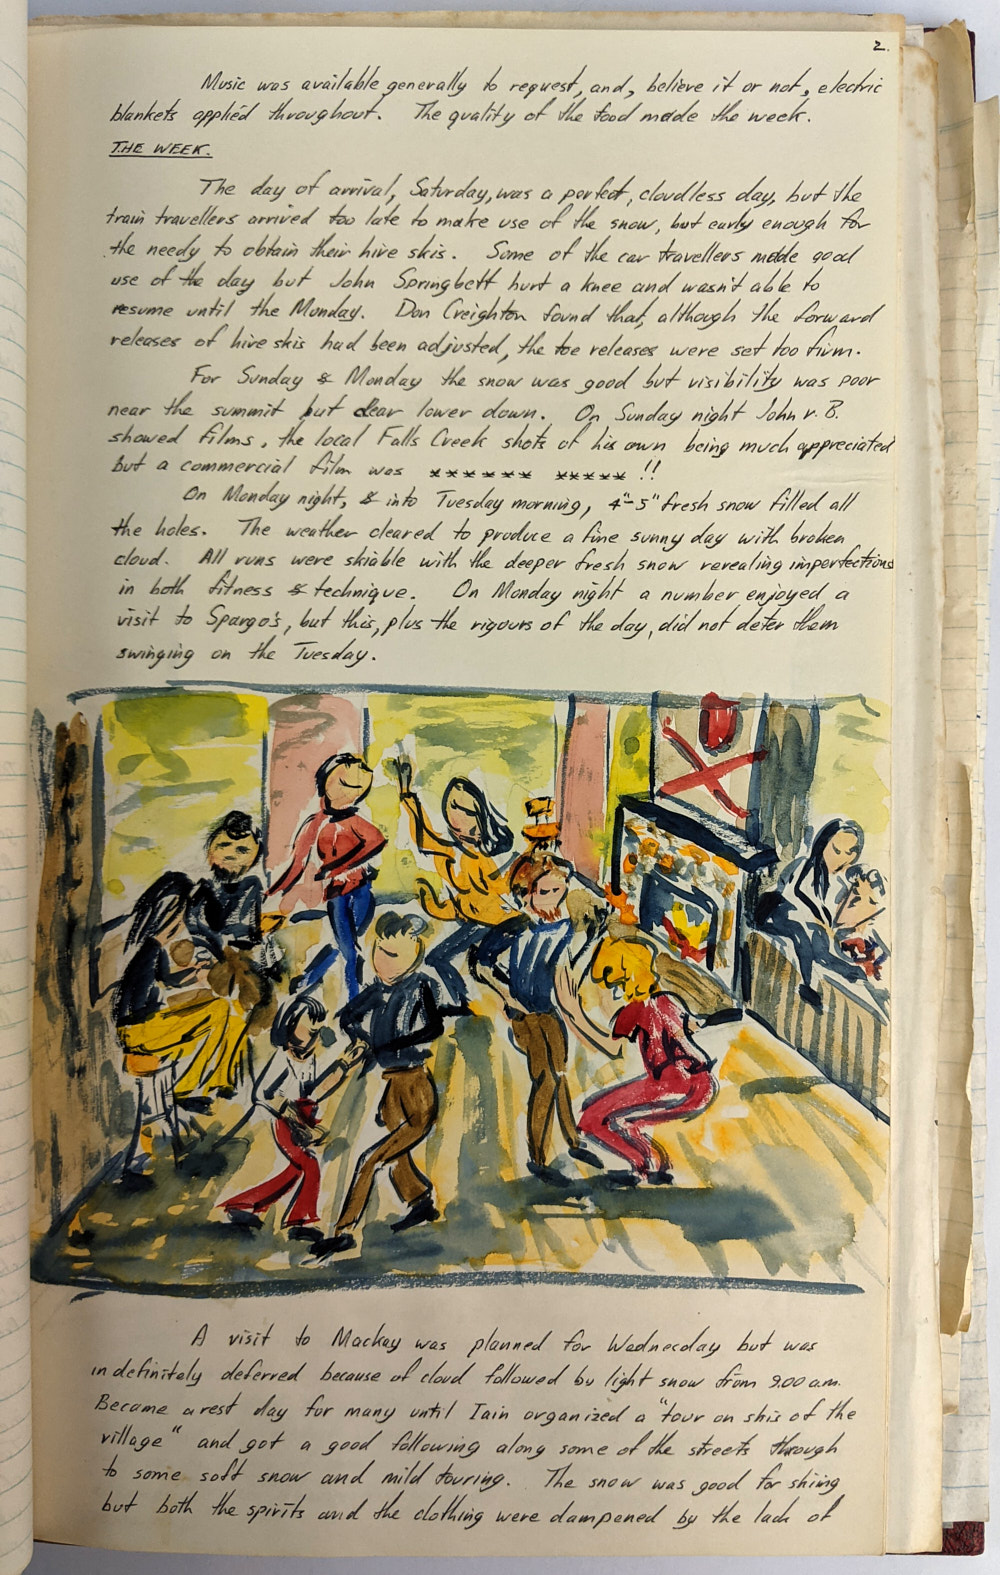 2.
Music was available generally to request, and, believe it or not, electric
blankets applied throughout. The quality of the food made the week.
THE WEEK.
The day of arrival, Saturday, was a perfect, cloudless day, but the
train travellers arrived too late to make use of the snow, but early enough for
the needy to obtain their hire skis. Some of the car travellers made good
use of the day but John Springbett hurt a knee and wasn't able to
resume until the Monday. Don Creighton found that, although the forward
releases of hire skis had been adjusted, the toe releases were set too firm.
For Sunday & Monday the snow was good but visibility was poor
near the summit but clear lower down. On Sunday night John v. B.
showed films, the local Falls Creek shots of his own being much appreciated
but a commercial film was ****** ***** !!
On Monday night, & into Tuesday morning, 4"-5" fresh snow filled all
the holes. The weather cleared to produce a fine sunny day with broken
cloud. All runs were skiable with the deeper fresh snow revealing imperfections
in both fitness & technique. On Monday night a number enjoyed a
visit to Spargo's, but this, plus the rigours of the day, did not deter them
swinging on the Tuesday.
A visit to Mackay was planned for Wednesday but was
indefinitely deferred because of cloud followed by light snow from 9.00 a.m.
Became a rest day for many until Iain organized a "tour on skis of the
village" and got a good following along some of the streets through
to some soft snow and mild touring. The snow was good for skiing
but both the spirits and the clothing were dampened by the lack of